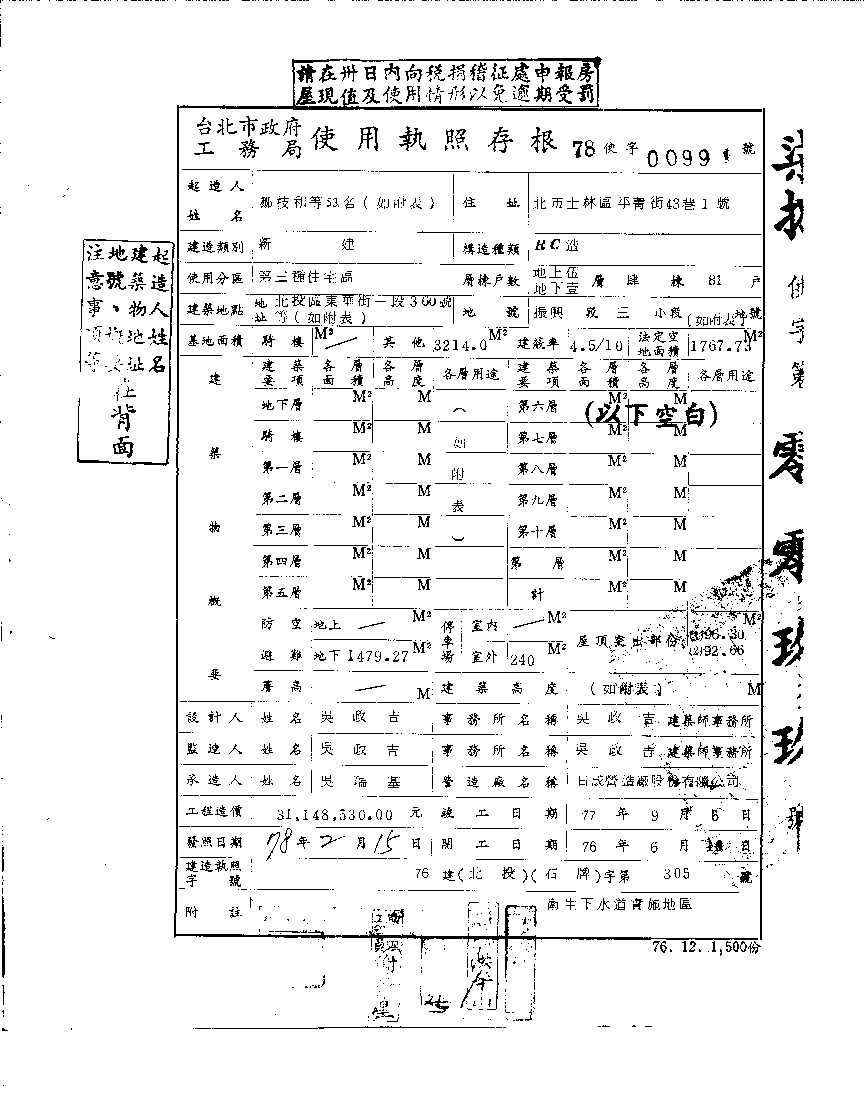 請在卅日內向稅捐稽征處申報房
屋現值及使用情形以免逾期受罰
台北市政府
工務局
使用執照存根 78 使字 00991 號
起造人
姓名
等53名(如附表)
住址
北市士林區平菁街43巷1號
建造類別 新建 構造種類 RC造
使用分區 第三種住宅區 層棟戶數 地上伍 地下壹 層 肆 棟 81 戶
建築地點 地址 北投區東華街一段360號
等(如附表)
地號 振興 段 三 小段 (如附表) 地號
基地面積 騎樓 M² 其他 3214.0 M² 建蔽率 4.5/10 法定空地面積 1767.73 M²
建築物概要
建築要項 各層面積 各層高度 各層用途 建築要項 各層面積 各層高度 各層用途
地下層 M² M 第六層 M² M
(以下空白)
騎樓 M² M 第七層 M² M
第一層 M² M 第八層 M² M
第二層 M² M 第九層 M² M
第三層 M² M 第十層 M² M
第四層 M² M 第 層 M² M
第五層 M² M 計 M² M
(如附表)
防空避難 地上 M² 停車場 室內 M² 屋頂突出部份 (1)96.30 M²
地下 1479.27 M² 室外 240 M² (2)92.66
簷高 M 建築高度 (如附表) M
設計人 姓名 吳政吉 事務所名稱 吳政吉建築師事務所
監造人 姓名 吳政吉 事務所名稱 吳政吉建築師事務所
承造人 姓名 吳瑞基 營造廠名稱 日成營造廠股份有限公司
工程造價 31,148,530.00 元 竣工日期 77 年 9 月 6 日
發照日期 78年2月15日 開工日期 76 年 6 月 日
建造執照
字號
76 建(北投)(石牌)字第 305 號
附註
南生下水道實施地區
76.12.1,500份
起造人姓名
建築物地址
地號、
注意事項等
在背面
使字第零零玖玖號